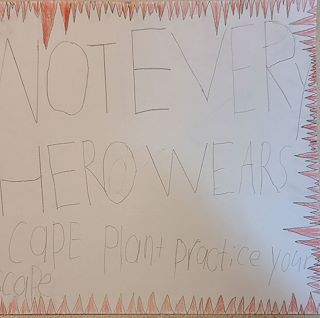 NOT EVERY
HERO WEARS
CAPE Plan + practice your
scape